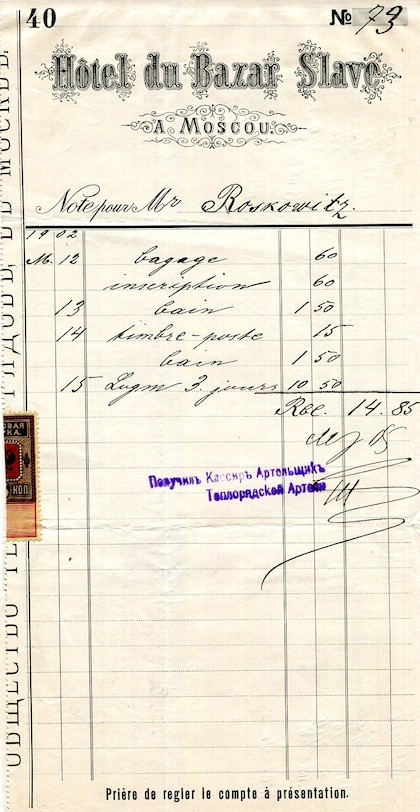 40 № 73
Hôtel du Bazar Slave
A Moscou.
Note pour Mr Roskowitz.
1902
M. 12 bagage 60
inscription 60
13 bain 1 50
14 timbre-poste 15
bain 1 50
15 Logm 3. jours 10 50
Rbl. 14.85
Получилъ Кассиръ Артельщикъ
Теплорядской Артели
КОП
Prière de regler le compte à présentation.